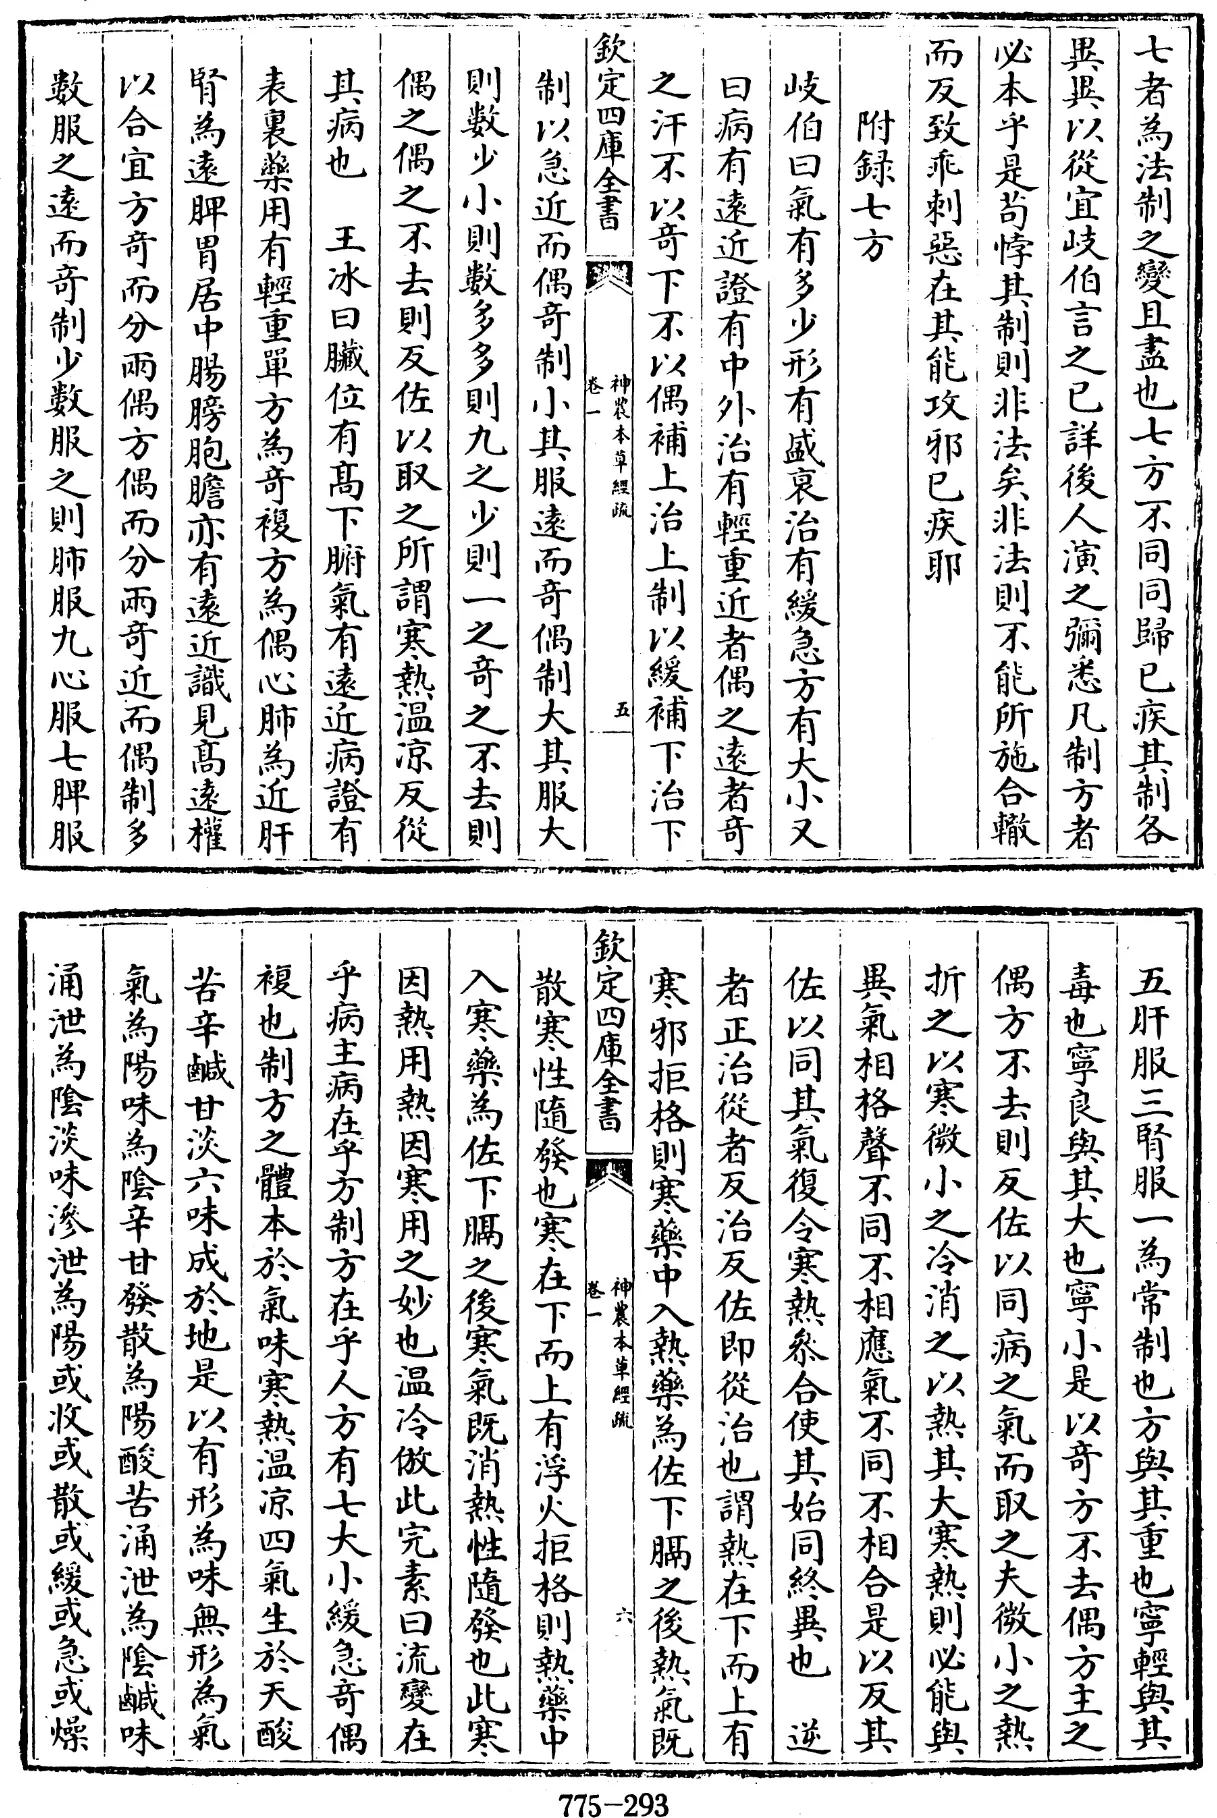 七者為法制之變且盡也七方不同同歸已疾其制各
異異以從宜岐伯言之已詳後人演之彌悉凡制方者
必本乎是茍悖其制則非法矣非法則不能所施合轍
而反致乖刺惡在其能攻邪已疾耶
附録七方
岐伯曰氣有多少形有盛衰治有緩急方有大小又
曰病有遠近證有中外治有輕重近者偶之遠者奇
之汗不以奇下不以偶補上治上制以緩補下治下
欽定四庫全書
神農本草經疏
卷一
五
制以急近而偶奇制小其服遠而奇偶制大其服大
則數少小則數多多則九之少則一之奇之不去則
偶之偶之不去則反佐以取之所謂寒熱温凉反從
其病也　王冰曰臟位有髙下腑氣有遠近病證有
表裏藥用有輕重單方為奇複方為偶心肺為近肝
腎為遠脾胃居中腸膀胞膽亦有遠近識見髙遠權
以合宜方奇而分兩偶方偶而分兩奇近而偶制多
數服之遠而奇制少數服之則肺服九心服七脾服
五肝服三腎服一為常制也方與其重也寧輕與其
毒也寧良與其大也寧小是以奇方不去偶方主之
偶方不去則反佐以同病之氣而取之夫微小之熱
折之以寒微小之冷消之以熱其大寒熱則必能與
異氣相格聲不同不相應氣不同不相合是以反其
佐以同其氣復令寒熱叅合使其始同終異也　逆
者正治從者反治反佐即從治也謂熱在下而上有
寒邪拒格則寒藥中入熱藥為佐下膈之後熱氣既
欽定四庫全書
神農本草經疏
卷一
六
散寒性隨發也寒在下而上有浮火拒格則熱藥中
入寒藥為佐下膈之後寒氣既消熱性隨發也此寒
因熱用熱因寒用之妙也温冷倣此完素曰流變在
乎病主病在乎方制方在乎人方有七大小緩急奇偶
複也制方之體本於氣味寒熱温凉四氣生於天酸
苦辛鹹甘淡六味成於地是以有形為味無形為氣
氣為陽味為陰辛甘發散為陽酸苦涌泄為陰鹹味
涌泄為陰淡味滲泄為陽或收或散或緩或急或燥
775-293